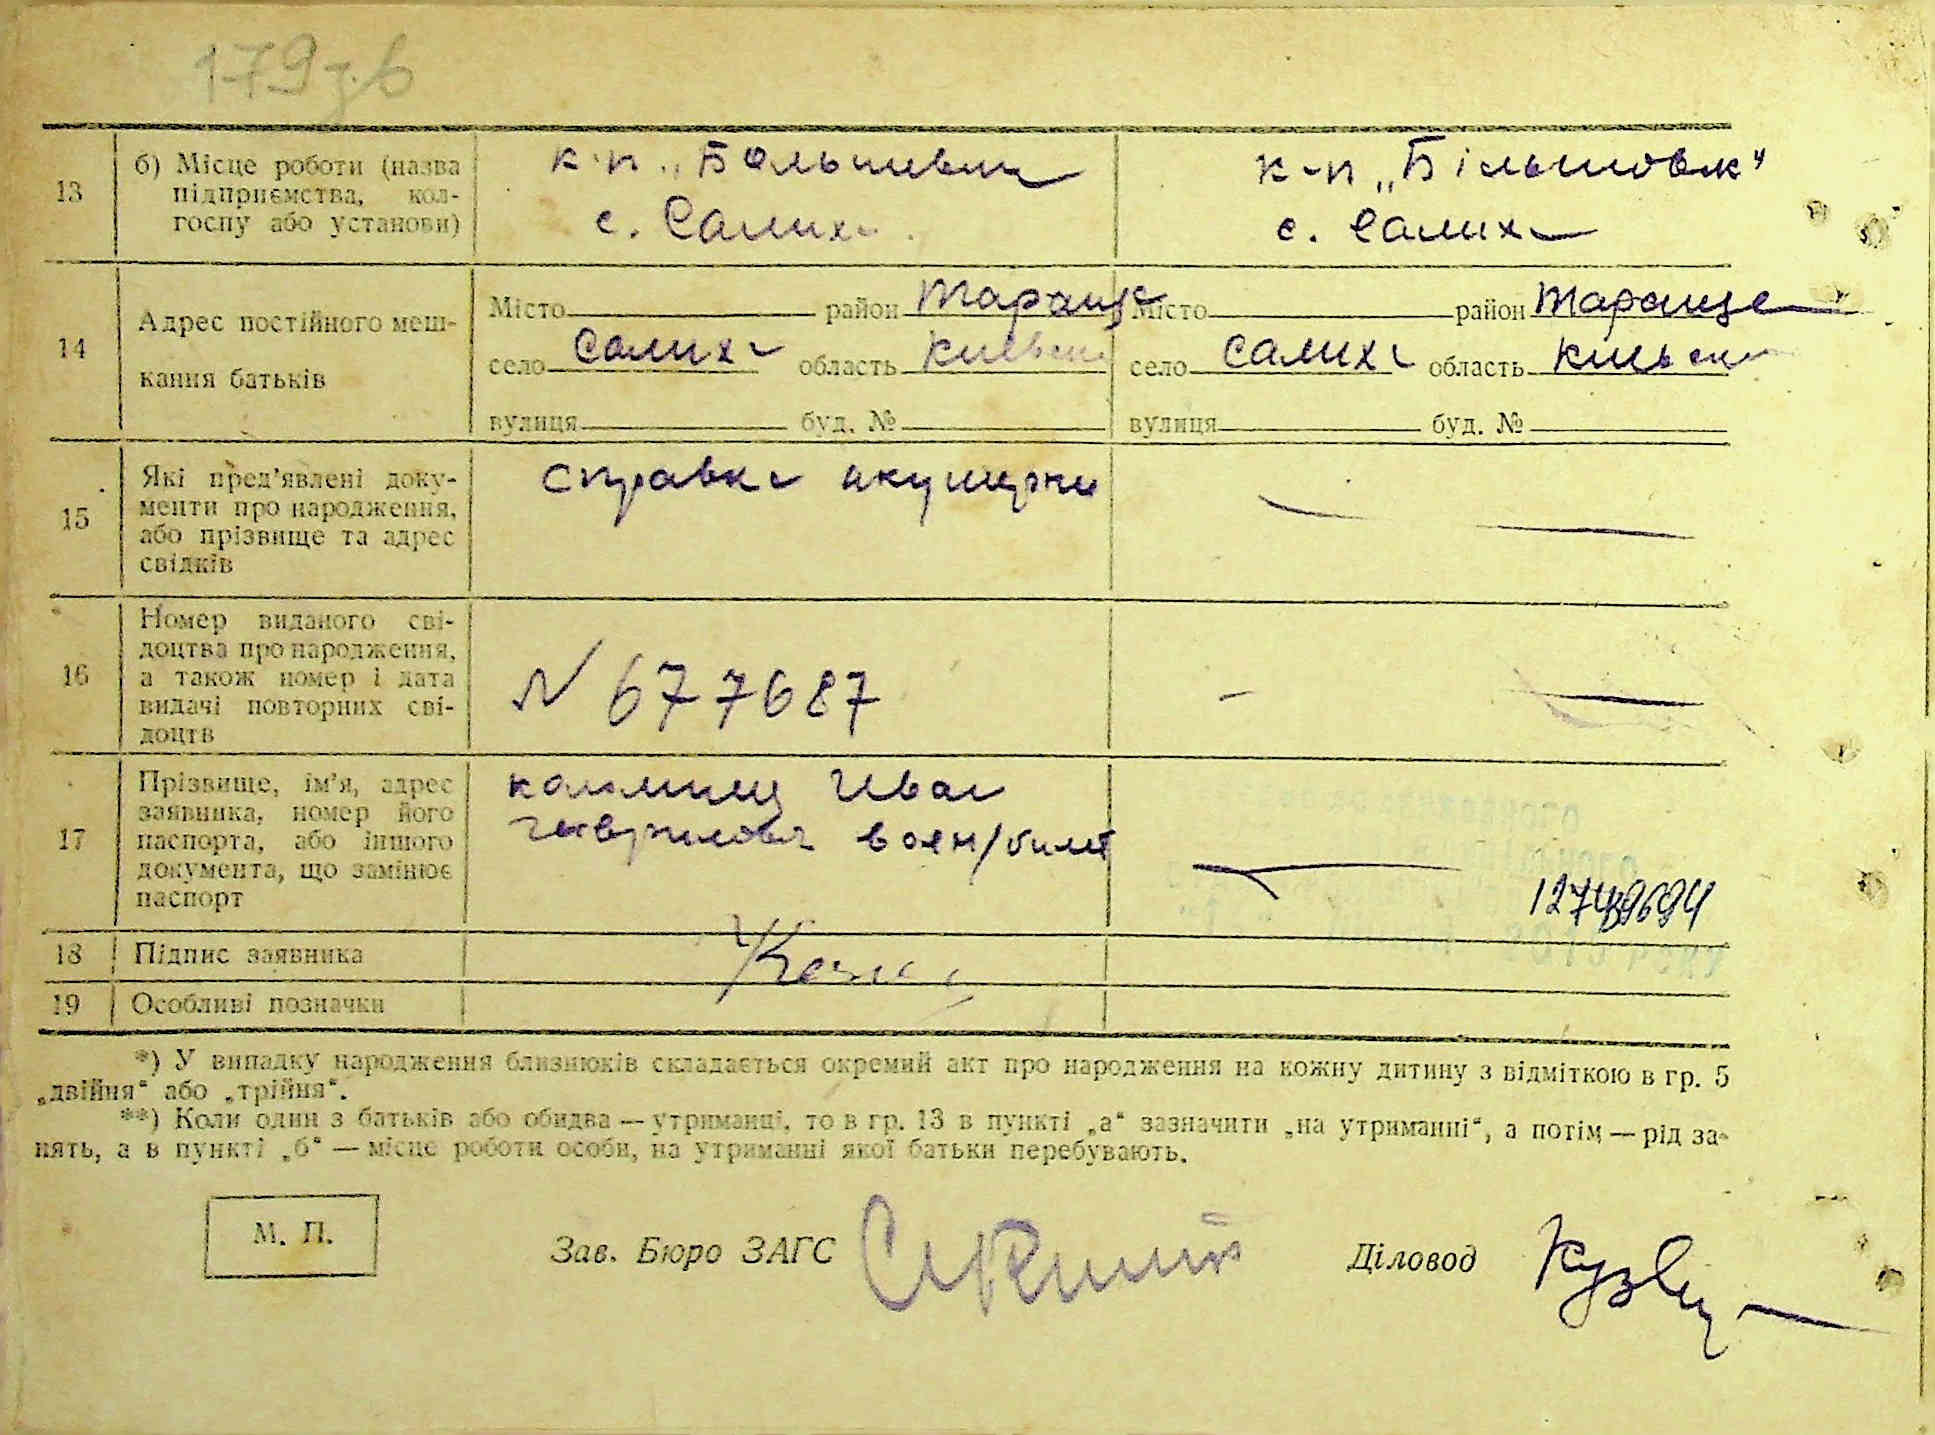 179 зв
13
б) Місце роботи (назва
підприємства, кол-
госпу або установи)
к-п „Большевик
с. Салиха
к-п „Більшовик"
с. Салиха
14
Адрес постійного меш-
кання батьків
Місто район Таращ
село Салиха область Київськ
вулиця буд. №
Місто район Тараще
село Салиха область Київськ
вулиця буд. №
15
Які пред'явлені доку-
менти про народження,
або прізвище та адрес
свідків
Справка акушерки
16
Номер виданого сві-
доцтва про народження,
а також номер і дата
видачі повторних сві-
доцтв
N 677687
17
Прізвище, ім'я, адрес
заявника, номер його
паспорта, або іншого
документа, що замінює
паспорт
Иван
Гаврилович воен/билет
18
Підпис заявника
19
Особливі позначки
*) У випадку народження близнюків складається окремий акт про народження на кожну дитину з відміткою в гр. 5
„двійня“ або „трійня“.
**) Коли один з батьків або обидва — утриманці, то в гр. 13 в пункті „а“ зазначити „на утриманні“, а потім — рід за-
нять, а в пункті „б“ — місце роботи особи, на утриманні якої батьки перебувають.
М. П.
Зав. Бюро ЗАГС
Діловод